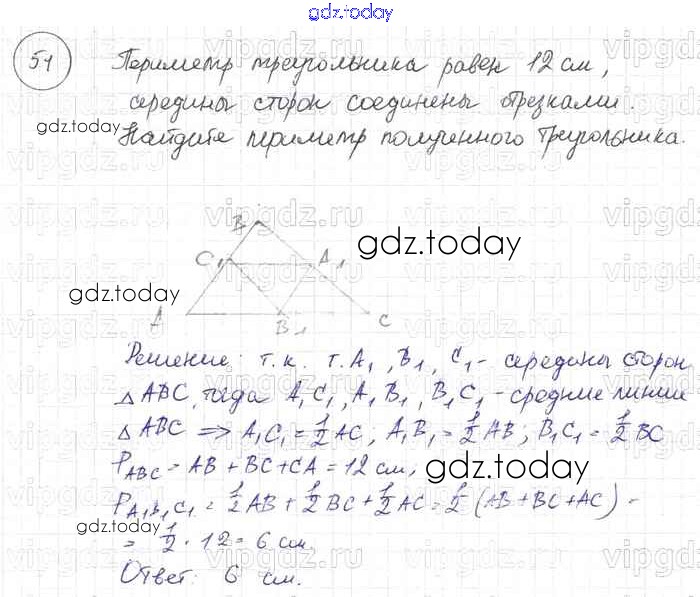 gdz.today
51
Периметр треугольника равен 12 см,
середины сторон соединены отрезками.
gdz.today
Найдите периметр полученного треугольника.
vipgdz.ru
B
gdz.today
C₁ A₁
gdz.today
A B₁ C
Решение: т.к. т. A₁, B₁, C₁ - середины сторон
△ABC, тогда A₁C₁, A₁B₁, B₁C₁ - средние линии
△ABC ⇒ A₁C₁ = 1/2 AC; A₁B₁ = 1/2 AB; B₁C₁ = 1/2 BC
P_ABC = AB + BC + CA = 12 см,
gdz.today
P_A₁B₁C₁ = 1/2 AB + 1/2 BC + 1/2 AC = 1/2 (AB + BC + AC) =
gdz.today
= 1/2 · 12 = 6 см.
Ответ: 6 см.